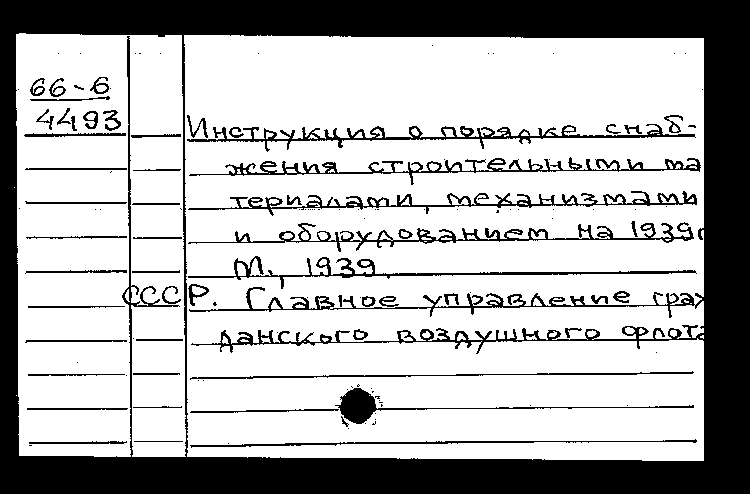 66-6
4493
Инструкция о порядке снаб-
жения строительными ма
териалами, механизмами
и оборудованием на 1939г
М., 1939.
СССР. Главное управление граж
данского воздушного флота